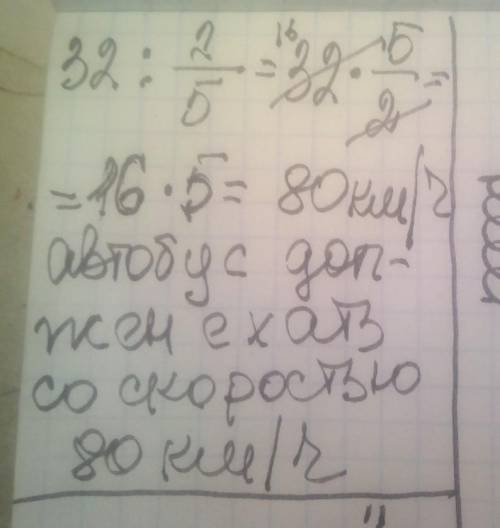 32 : 2/5 = 32 · 5/2 =
16
= 16 · 5 = 80 км/ч
автобус дол-
жен ехать
со скоростью
80 км/ч